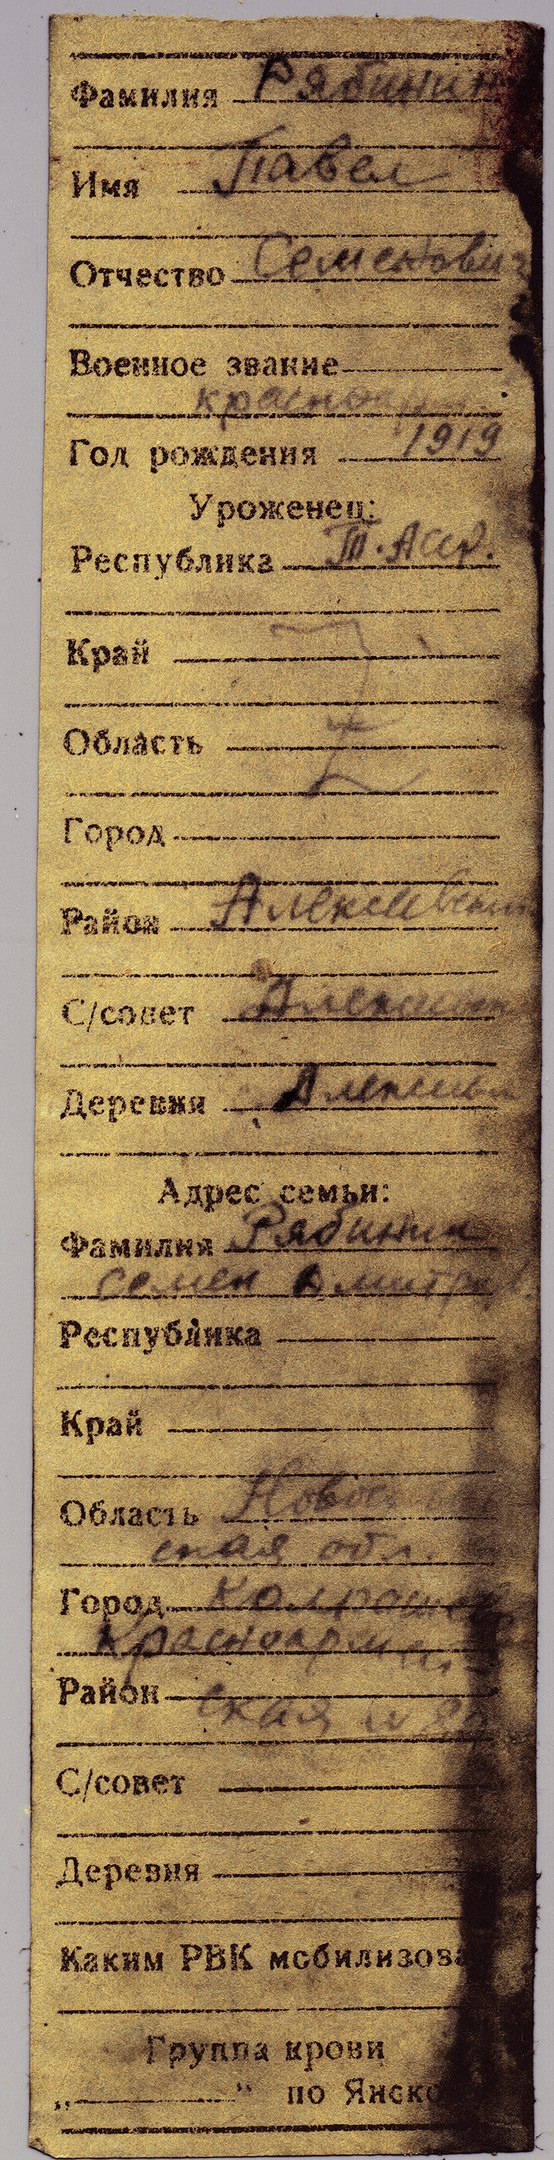 Фамилия Рябинин
Имя Павел
Отчество Семенович
Военное звание
красноарм
Год рождения 1919
Уроженец:
Республика Т. Асср.
Край
Область
Город
Район Алексеевский
С/совет
Деревня
Адрес семьи:
Фамилия Рябинин
семен Дмитр
Республика
Край
Область Новосибир
ская обл.
Город Колпашево
Красноармей
Район ская
С/совет
Деревня
Каким РВК мобилизова
Группа крови
„ " по Янско